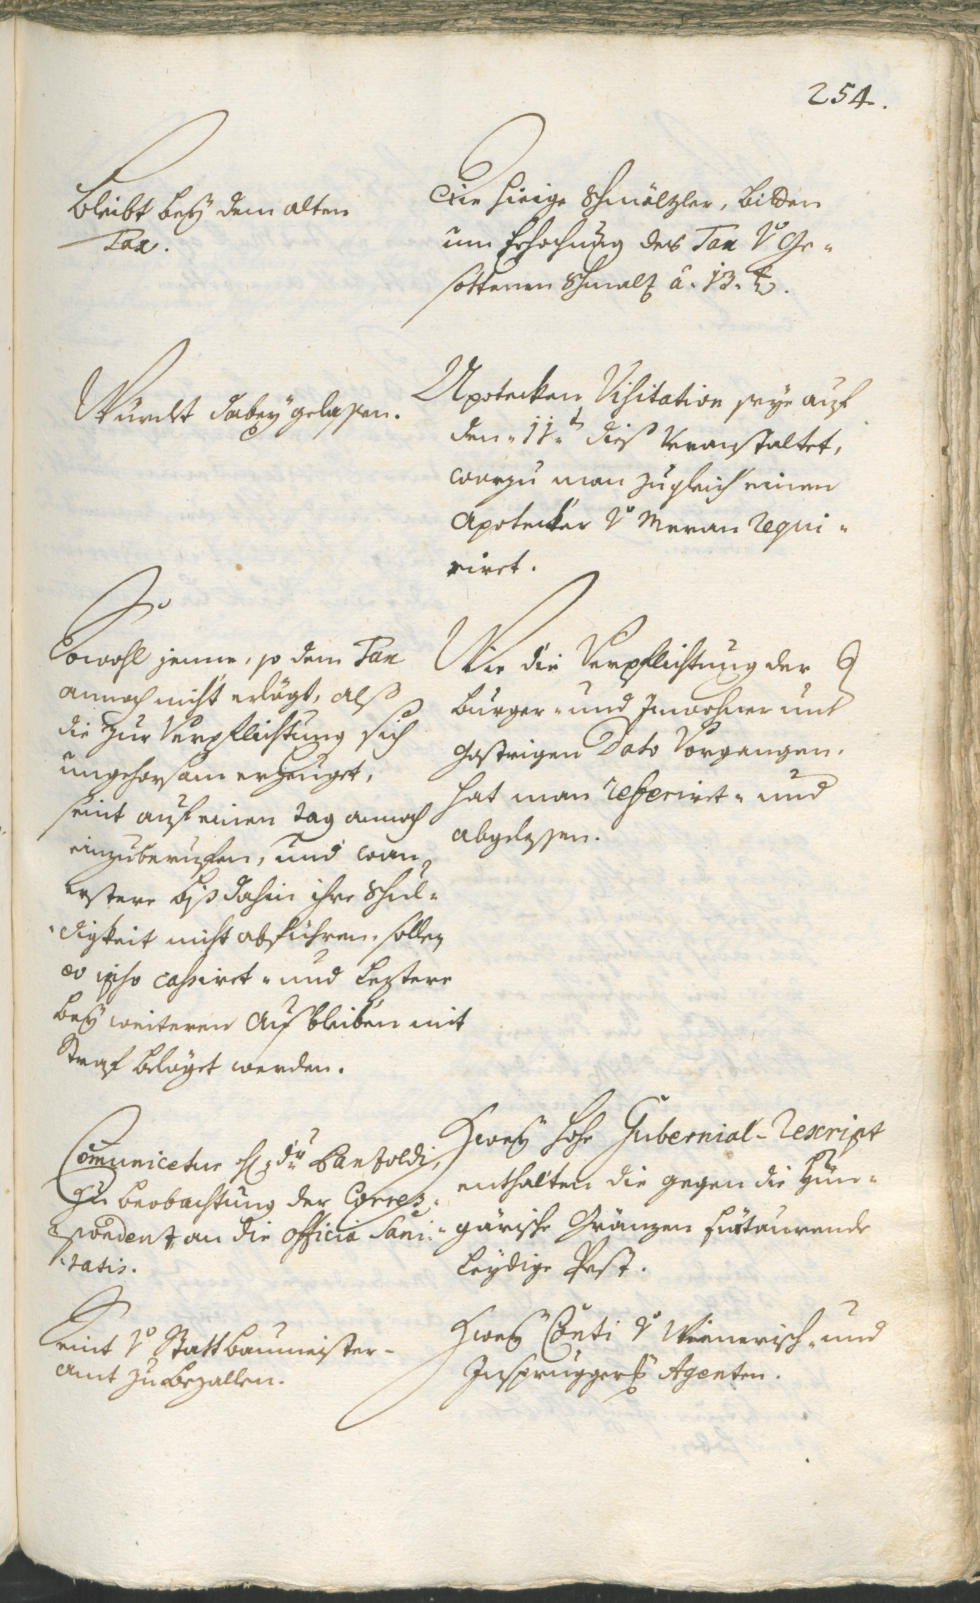 254.
Bleibt beÿ dem alten
Tax.
Die hieige Schmölzler, bitten
um Erhochung des Tax vo Ge-
sottenen Schmalz â. 13. x.
Würdt dabeÿ gelassen.
Apotecken Visitation seÿe auf
den 11t diß Veranstaltet,
worzu man zugleich einen
Apotecker vo Meran requi-
riret.
Sowohl jenne, so dem Tax
annoch nicht erlögt, alß
die zur Verpflichtung sich
ungehorsam erzeuget,
seint auf einen tag annoch
einzuberuffen, und wan
erstere biß dahin ihre Schul-
digkeit nicht abführen, sollen
eo ipso cassiret- und leztere
beÿ weiteren Ausbleiben mit
Straf beleget werden.
Wie die Verpflichtung der
Burger- und Innwohner und
gestrigen Dato Vorgangen.
hat man referiret- und
abgelessen.
Comunicetur H: dr Panzoldi,
zu beobachtung der Corres-
pondenz an die officia Sani-
tatis.
Zweÿ hohe Gubernial-Rescript
enthalten die gegen die Hun-
gärische Gränzen furtaurende
Leÿdige Pest.
Seint vo Stattbaumeister-
amt zu bezallen.
Zweÿ Conti vo Wienerisch- und
Insprugger Agenten.